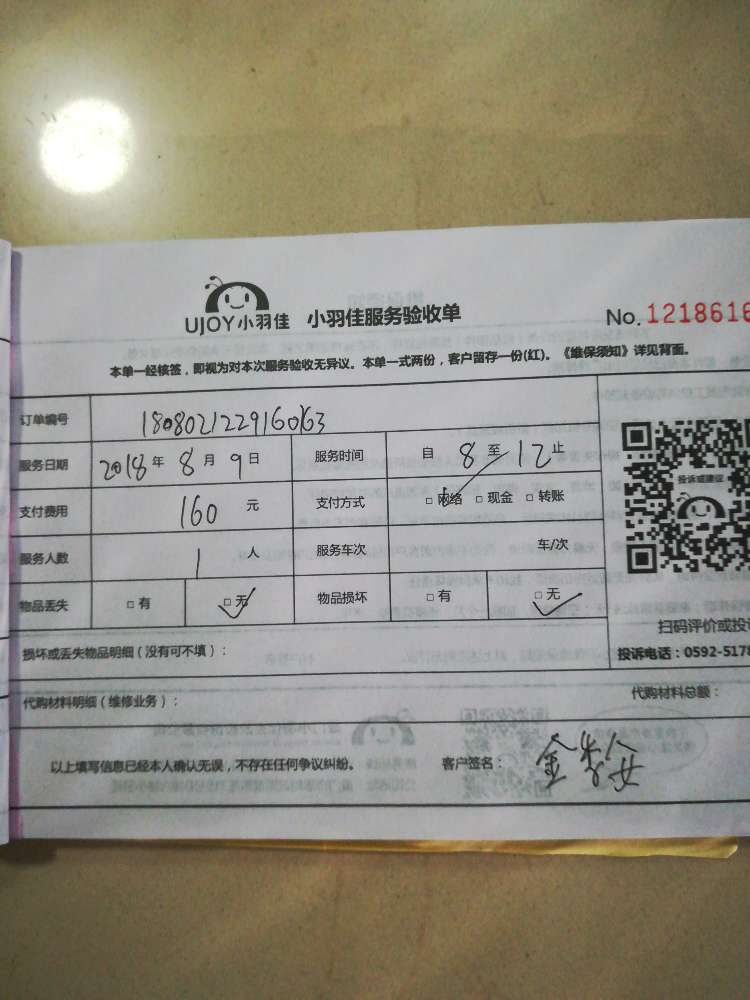 UJOY小羽佳 小羽佳服务验收单 No. 1218616
本单一经核签，即视为对本次服务验收无异议。本单一式两份，客户留存一份(红)。《维保须知》详见背面。
订单编号 180802122916063
服务日期 2018年8月9日 服务时间 自8至12止
支付费用 160元 支付方式 □网络 □现金 □转账
服务人数 1人 服务车次 车/次
投诉或建议
物品丢失 □有 □无 物品损坏 □有 □无
扫码评价或投诉
损坏或丢失物品明细（没有可不填）： 投诉电话：0592-5178
代购材料明细（维修业务）： 代购材料总额：
以上填写信息已经本人确认无误，不存在任何争议纠纷。 客户签名：